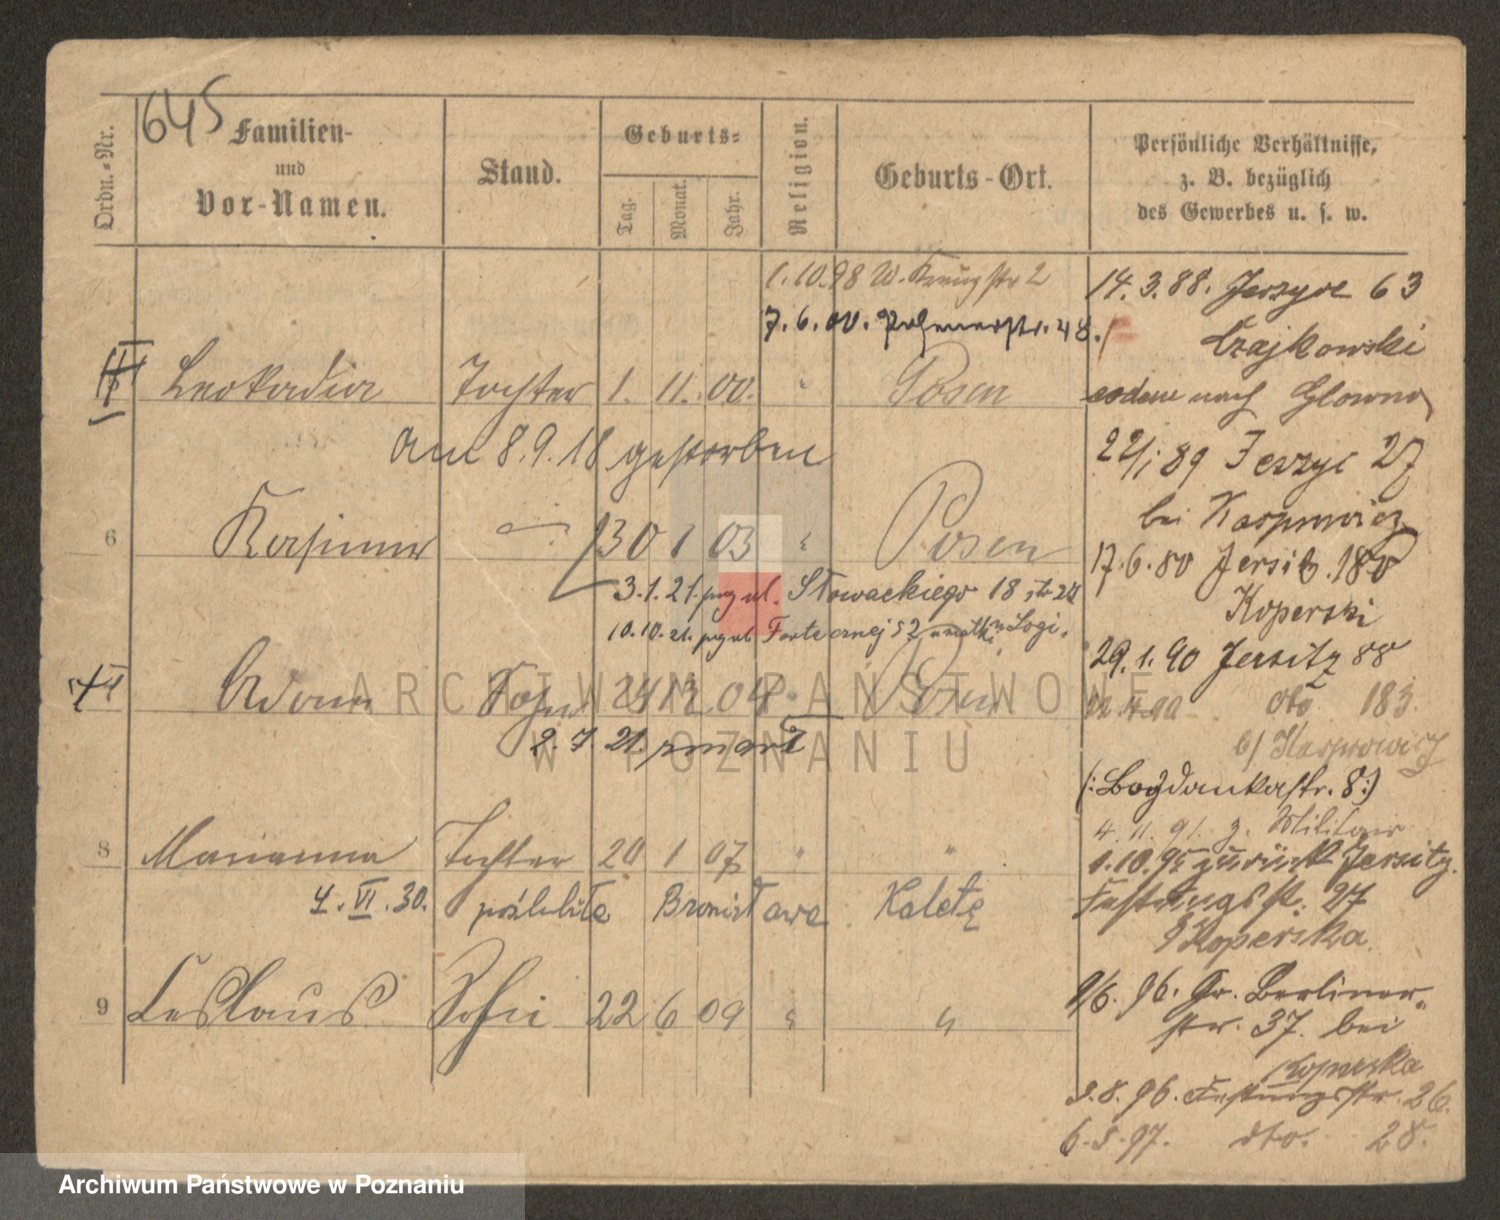 645
Ordn.-Nr.
Familien-
und
Vor-Namen.
Stand.
Geburts-
Tag.
Monat.
Jahr.
Religion.
Geburts-Ort.
Persönliche Verhältnisse,
z. B. bezüglich
des Gewerbes u. s. w.
1.10.98 W. Kreuzstr 2
7.6.00. Posenerstr. 48.
Leokadia Tochter 1. 11. 00. " Posen
am 8.9.18 gestorben
6 Kasimir 30 1 03 " Posen
3.1.21. prz ul. Słowackiego 18
10.10.21. prz ul Fortecznej
Adam Sohn 24 12 04 Posen
2.7.21. zmarł
8 Marianna Tochter 20 1 07 " "
4.VI.30. poślubiła Bronisława Kaletę
9 Leslaus Sohn 22 6 09 " "
14.3.88. Jerzyce 63
Czajkowski
nach Glowno
22/1 89 Jerzyc 27
bei Kasprowicz
17.6.80 Jersitz. 180
Koperski
29.1.90 Jersitz 88
dto 183.
b/ Kasprowicz
(: Bogdankastr. 8:)
4.11.91. z. Militär
1.10.95 zurück Jersitz.
Festungsstr. 27
Koperska.
9/6. 96. Gr. Berliner-
str. 37. bei
Koperska
3.8.96. Festungsstr. 26.
6.5.97. dto. 28.
ARCHIWUM PAŃSTWOWE
W POZNANIU
Archiwum Państwowe w Poznaniu